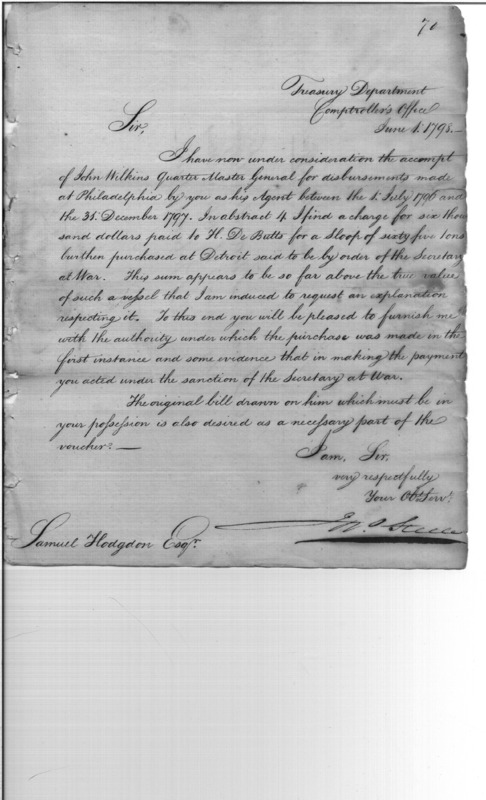 70
Treasury Department
Comptroller's Office
June 1. 1798.—
Sir,
I have now under consideration the accompt
of John Wilkins Quarter Master General for disbursements made
at Philadelphia by you as his Agent between the 1. July 1796 and
the 31. December 1797. In abstract 4 I find a charge for six thou
sand dollars paid to H. De Butts for a Sloop of sixty five tons
burthen purchased at Detroit said to be by order of the Secretary
at War. This sum appears to be so far above the true value
of such a vessel that I am induced to request an explanation
respecting it. To this end you will be pleased to furnish me
with the authority under which the purchase was made in the
first instance and some evidence that in making the payment
you acted under the sanction of the Secretary at War.
The original bill drawn on him which must be in
your possession is also desired as a necessary part of the
voucher.—
I am, Sir,
very respectfully
Your Obt. Servt.
Jno. Steele
Samuel Hodgdon Esqr.